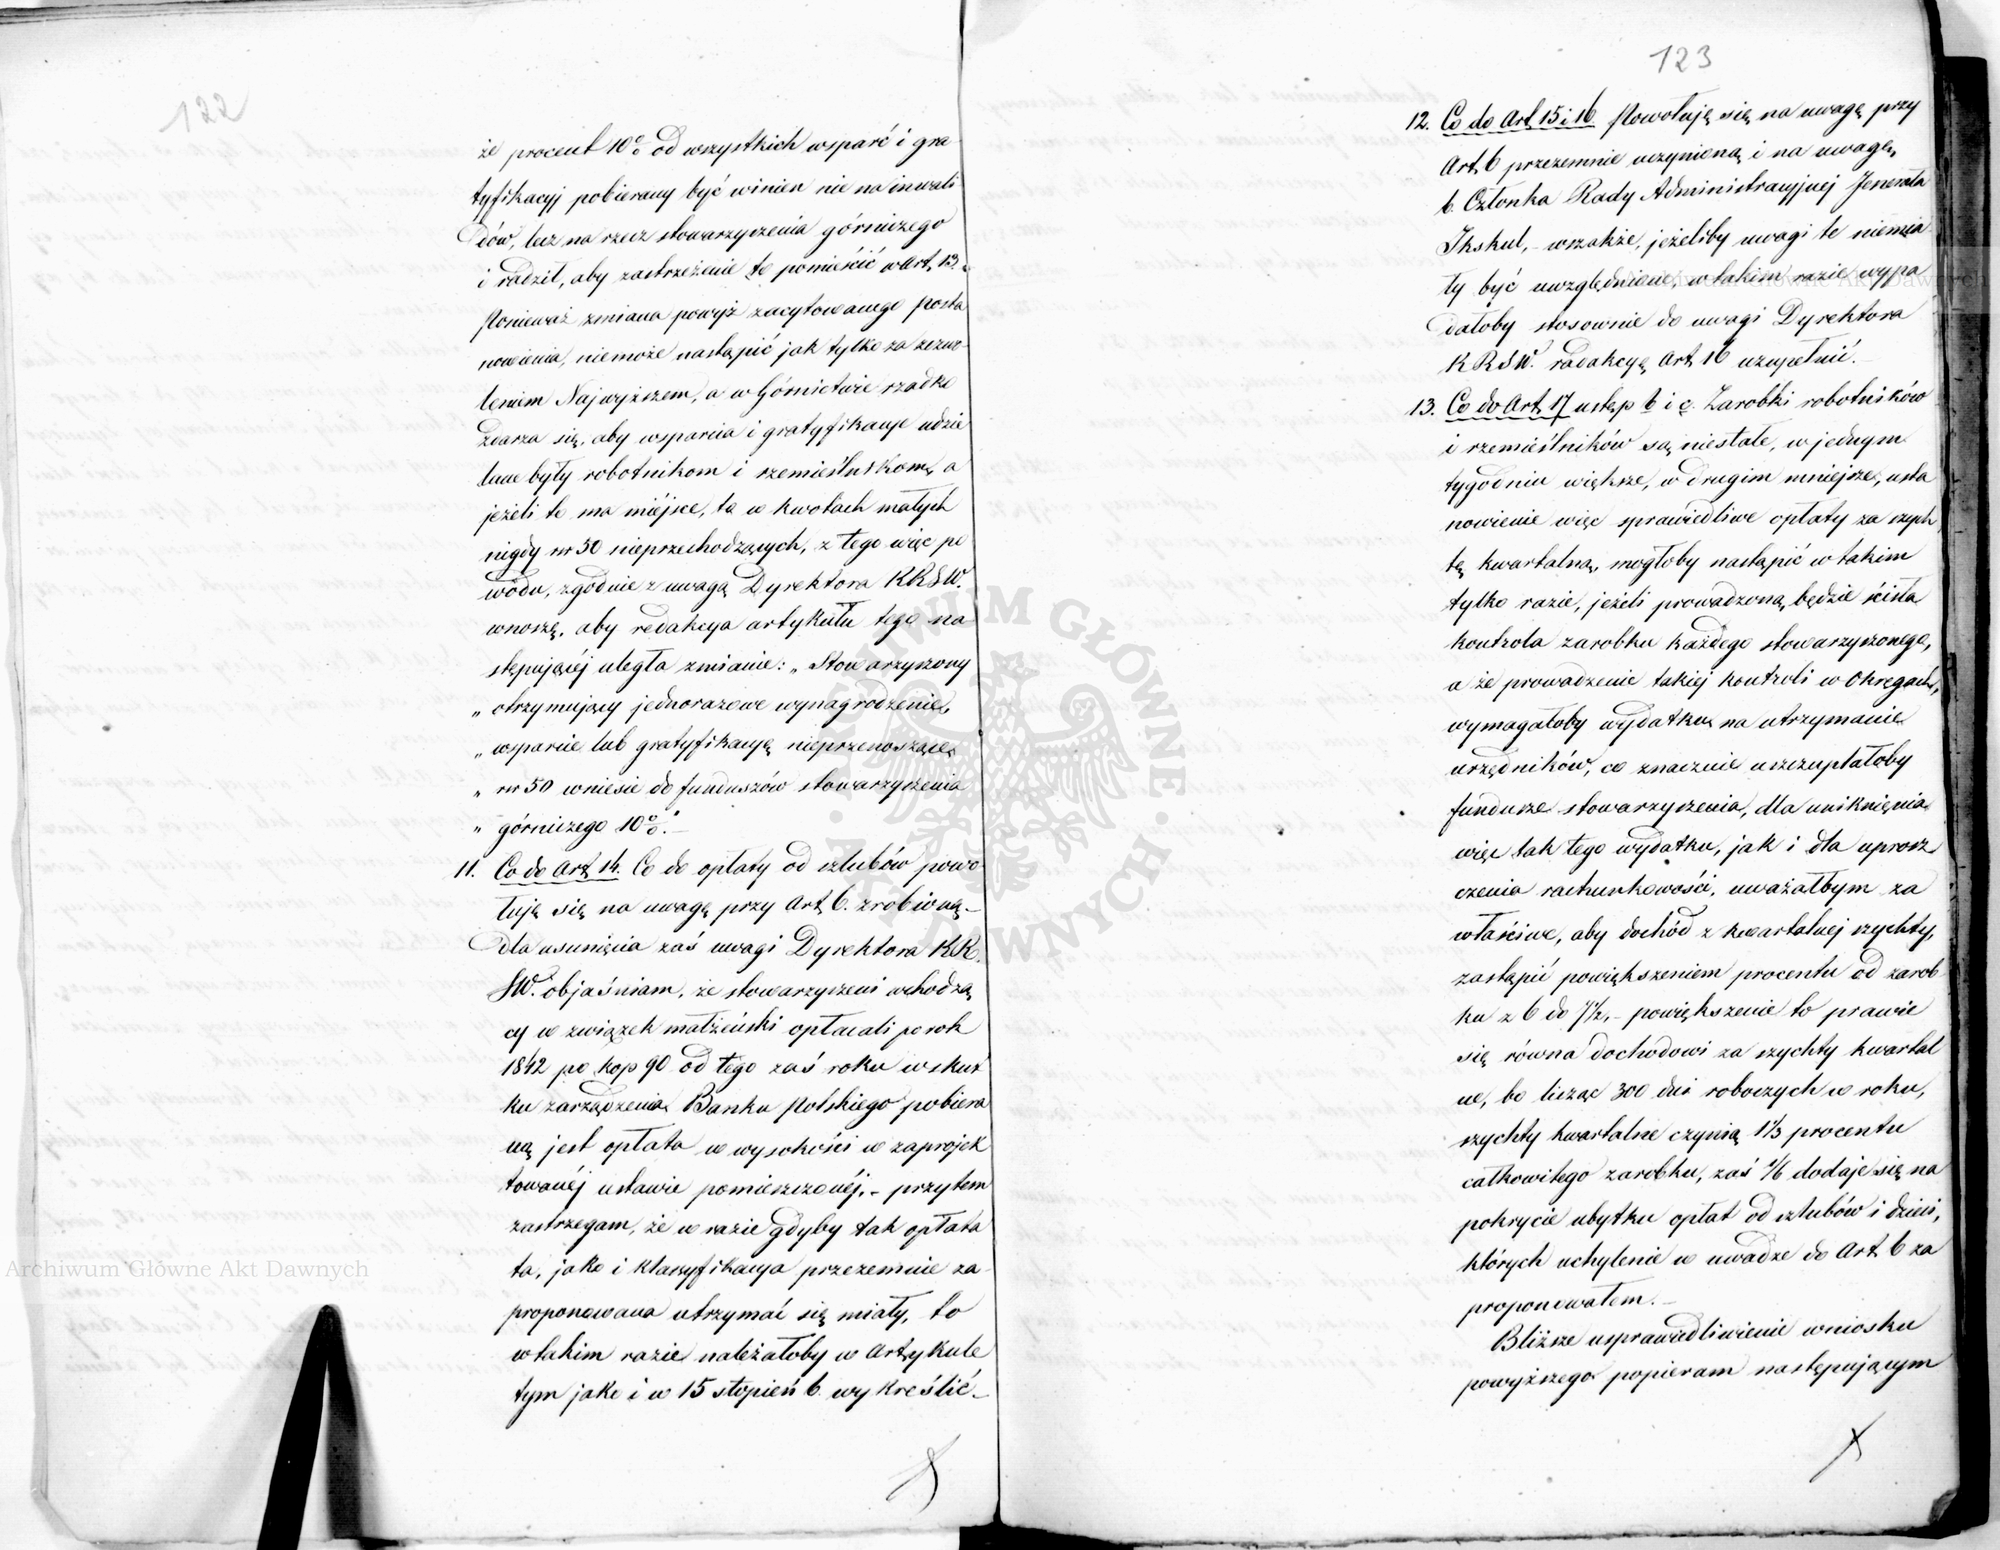 122
że procent 10% od wszystkich wsparć i gra
tyfikacyj pobierany być winien nie na inwali
dów, lecz na rzecz stowarzyszenia górniczego
i radził, aby zastrzeżenie to pomieścić w Art. 13.
Ponieważ zmiana powyż zacytowanego posta
nowienia, niemoże nastąpić jak tylko za zezwo-
leniem Najwyższem, a w Górnictwie rzadko
zdarza się, aby wsparcia i gratyfikacye udzie
lane były robotnikom i rzemieślnikom, a
jeżeli to ma miéjsce, to w kwotach małych
nigdy rs 50 nieprzechodzących, z tego więc po
wodu, zgodnie z uwagą Dyrektora KRSW.
wnoszę, aby redakcya artykułu tego na
stępującéj uległa zmianie: „Stowarzyszony
„ otrzymujący jednorazowe wynagrodzenie,
„ wsparcie lub gratyfikacyę nieprzenoszące
„ rs 50 wniesie do funduszów stowarzyszenia
„ górniczego 10%."—
11. Co do Art. 14. Co do opłaty od szlubów powo-
łuję się na uwagę przy Art. 6. zrobioną.—
dla usunięcia zaś uwagi Dyrektora KR.
SW. objaśniam, że stowarzyszeni wchodzą
cy w związek małżeński opłacali po rok
1842 po kop 90 od tego zaś roku w skut
ku zarządzenia Banku Polskiego pobiera
ną jest opłata w wysokości w zaprojek
towanéj ustawie pomieszczonéj,— przytem
zastrzegam, że w razie gdyby tak opłata
ta, jako i klasyfikacya przezemnie za-
proponowana utrzymać się miały, to
w takim razie należałoby w Artykule
tym jako i w 15 stopień 6. wykreślić.—
123
12. Co do Art. 15 i 16 Powołuję się na uwagę przy
Art. 6 przezemnie uczynioną i na uwagę,
b. Członka Rady Administracyjnej Jenerała
Ikskul,— wszakże, jeżeliby uwagi te niemia
ły być uwzględnione, w takim razie wypa
dałoby stosownie do uwagi Dyrektora
KRSW. radakcyę Art. 16 uzupełnić.—
13. Co do Art. 17 ustęp b i c. Zarobki robotników
i rzemieślników są niestałe, w jednym
tygodniu większe, w drugim mniejsze, usta
nowienie więc sprawiedliwe opłaty za szych
tę kwartalną, mogłoby nastąpić w takim
tylko razie, jeżeli prowadzoną będzie ścisła
kontrola zarobku każdego stowarzyszonego,
a że prowadzenie takiej kontroli w Okręgach,
wymagałoby wydatku na utrzymanie
urzędników, co znacznie uszczuplałoby
fundusze stowarzyszenia, dla uniknięcia
więc tak tego wydatku, jak i dla uprosz
czenia rachunkowości, uważałbym za
właściwe, aby dochód z kwartalnej szychty,
zastąpić powiększeniem procentu od zarob
ku z 6 do 7½,— powiększenie to prawie
się równa dochodowi za szychty kwartal
ne, bo licząc 300 dni roboczych w roku,
szychty kwartalne czynią 1⅓ procentu
całkowitego zarobku, zaś ⅙ dodaje się na
pokrycie ubytku opłat od szlubów i dzieci,
których uchylenie w uwadze do Art. 6 za
proponowałem.—
Bliższe usprawiedliwienie wniosku
powyższego popieram następującym
Archiwum Główne Akt Dawnych
ARCHIWUM GŁÓWNE AKT DAWNYCH